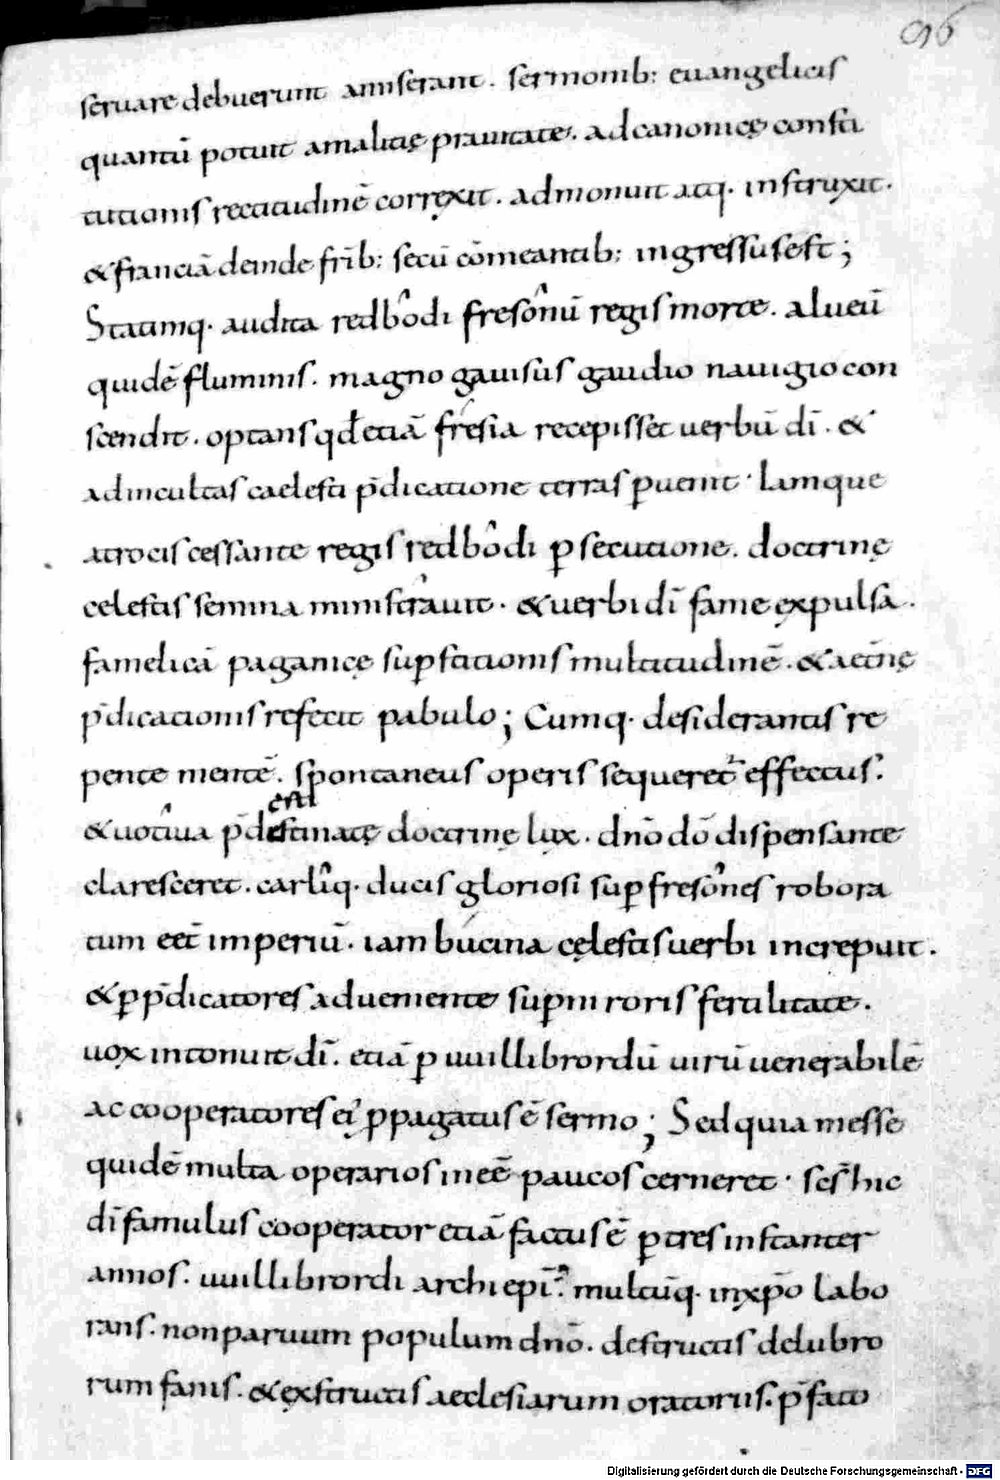 96
seruare debuerunt amiserant. sermonib: euangelicis
quantū potuit a malitię prauitate. ad canonicę consti
tutionis rectitudinē correxit. admonuit atq. instruxit.
& franciā deinde frīb: secū cōmeantib: ingressus est;
Statimq. audita redbodi fresonū regis morte. alueū
quidē fluminis. magno gauisus gaudio nauigio con
scendit. optans qđ etiā fresia recepisset uerbū dī. &
ad incultas caelesti p̄dicatione terras puenit. Iamque
atrocis cessante regis redbodi psecutione. doctrinę
celestis semina ministrauit. & uerbi dī fame expulsa.
famelicā paganicę supstitionis multitudinē. & aet̄nę
p̄dicationis refecit pabulo; Cumq. desiderantis re
pente mentē. spontaneus operis sequeret̄ effectus.
& uotiua p̄destinatę doctrinę lux. dn̄o dō dispensante
claresceret. carliq. ducis gloriosi sup fresones robora
tum eēt imperiū. iam bucina cęlestis uerbi increpuit.
& p p̄dicatores adueniente supni roris fertilitate.
uox intonuit dī. etiā p uuillibrordū uirū uenerabilē
ac cooperatores ei' ppagatus ē sermo; Sed quia messē
quidē multa operarios inēē paucos cerneret. scs̄ hic
dī famulus cooperator etiā factus ē p tres instanter
annos. uuillibrordi archiepi. multūq. in xp̄o labo
rans. non paruum populum dn̄o. destructis delubro
rum fanis. & exstructis aecclesiarum oratoriis. p̄fato
Digitalisierung gefördert durch die Deutsche Forschungsgemeinschaft - DFG